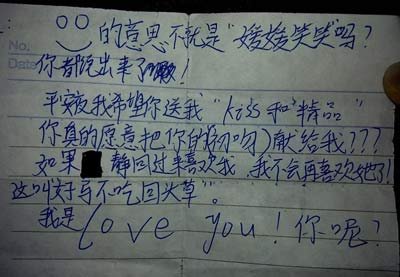 的意思不就是“媛媛笑笑”吗?
No.
Date
你都说出来了啊!
平安夜我希望你送我“kiss和“精品”
你真的愿意把你的初吻)献给我???
如果 静回过来喜欢我,我不会再喜欢她了!
这叫好马不吃回头草”。
我是 Love you! 你呢?